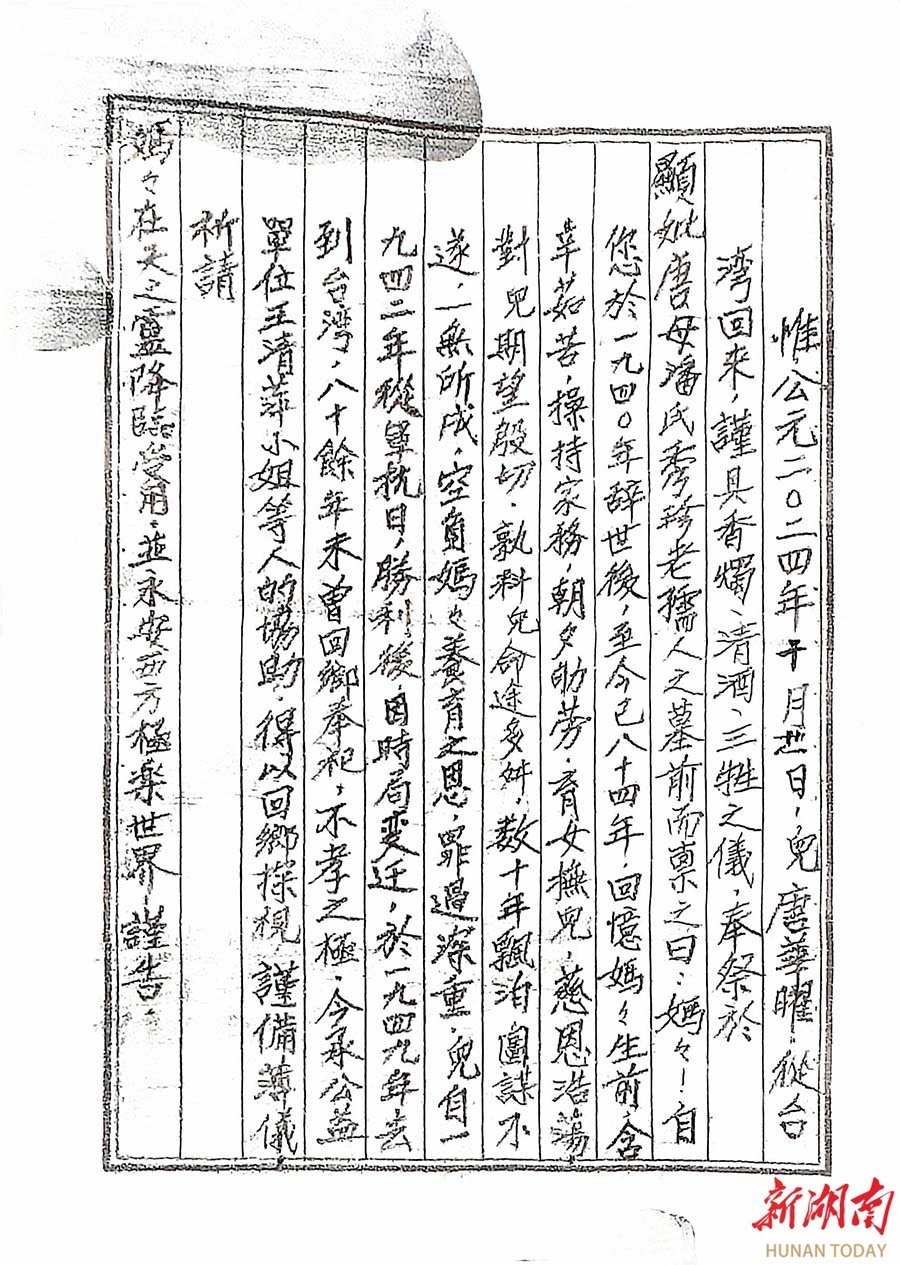 惟，公元二〇二四年十月廿一日，兒唐華曜，從台
湾回來，謹具香燭、清酒、三牲之儀，奉祭於
顯妣唐母潘氏秀珍老孺人之墓前而禀之曰：媽々！自
您於一九四〇年辞世後，至今已八十四年，回憶媽々生前，含
莘茹苦，操持家務，朝夕劬劳，育女撫兒，慈恩浩蕩，
對兒期望殷切，孰料兒命途多舛，数十年飄泊，圖謀不
遂，一無所成，空負媽々養育之恩，罪過深重，兒自一
九四二年從軍抗日，勝利後，因時局变迁，於一九四九年去
到台湾，八十餘年未曾回鄉奉祀，不孝之極，今承公益
單位王清萍小姐等人的協助，得以回鄉探視，謹備薄儀，
祈請
媽々在天之靈降臨受用，並永安西方極楽世界，謹告。
新湖南
HUNAN TODAY